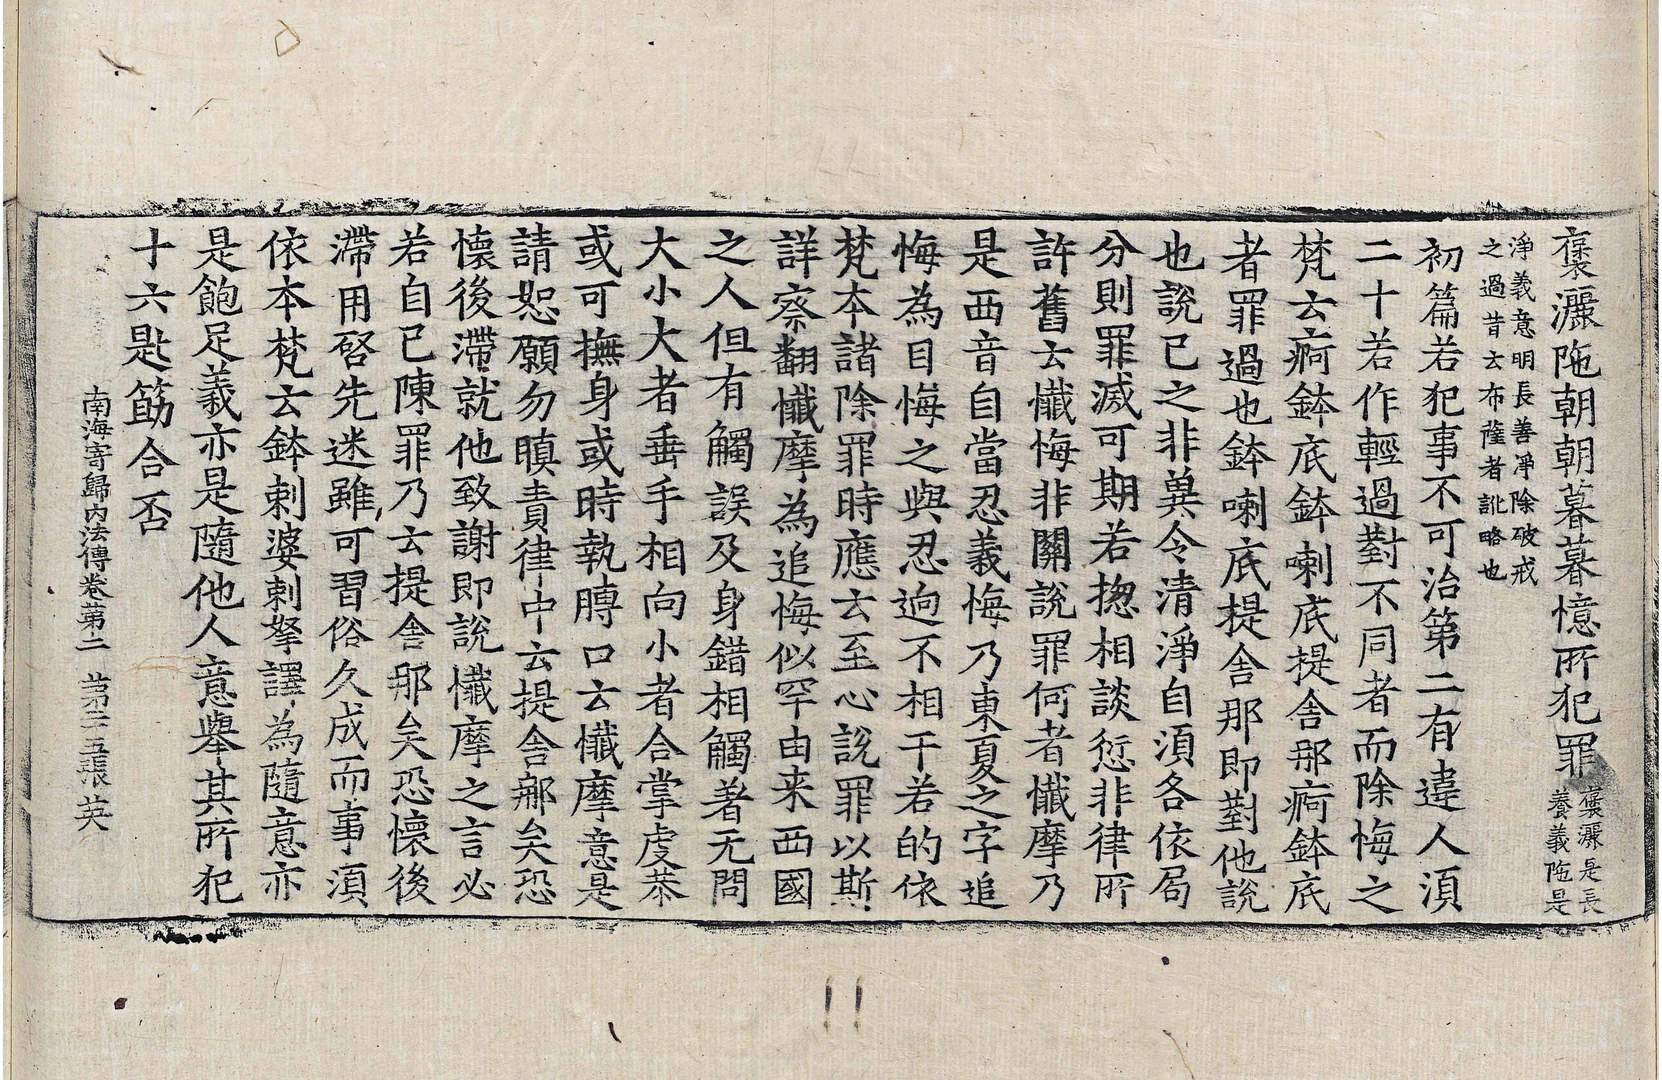 褒灑陁朝朝暮暮憶所犯罪褒灑是長養義陁是
淨義意明長善淨除破戒之過昔云布薩者訛略也
初篇若犯事不可治第二有違人湏
二十若作輕過對不同者而除悔之
梵云痾鉢底鉢喇底提舍那痾鉢底
者罪過也鉢喇底提舍那即對他說
也說已之非兾令清淨自湏各依局
分則罪滅可期若揔相談愆非律所
許舊云懺悔非關說罪何者懺摩乃
是西音自當忍義悔乃東夏之字追
悔為目悔之與忍逈不相干若的依
梵本諸除罪時應云至心說罪以斯
詳察翻懺摩為追悔似罕由来西國
之人但有觸誤及身錯相觸著无問
大小大者垂手相向小者合掌虔恭
或可撫身或時執膊口云懺摩意是
請恕願勿瞋責律中云提舍那矣恐
懷後滯就他致謝即說懺摩之言必
若自已陳罪乃云提舍那矣恐懷後
滯用啓先迷雖可習俗久成而事湏
依本梵云鉢剌婆剌拏譯為隨意亦
是飽足義亦是隨他人意舉其所犯
十六匙筯合否
南海寄歸內法傳卷苐二 苐二十五張 英